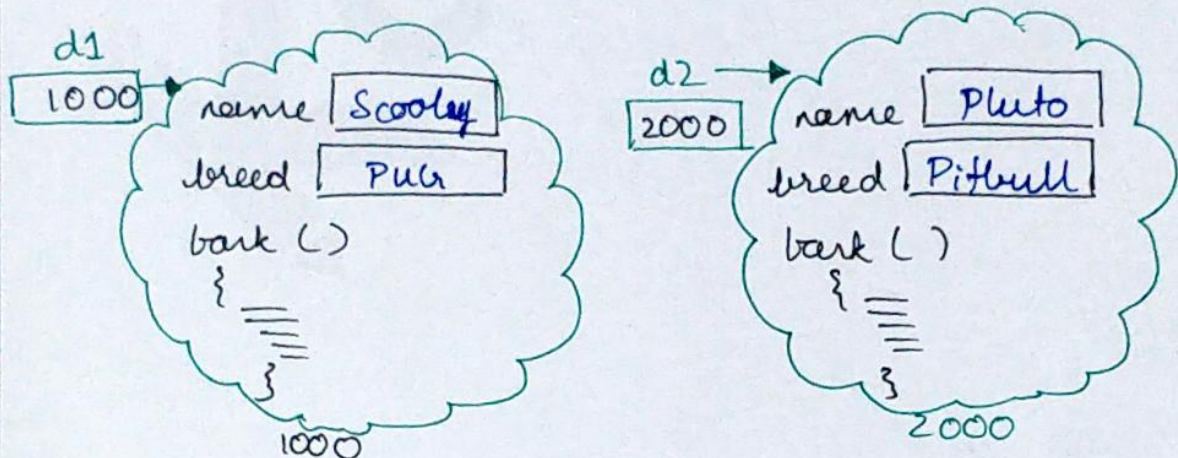 d1
1000
name Scooby
breed PUG
bark ()
{
}
1000
d2
2000
name Pluto
breed Pitbull
bark ( )
{
}
2000